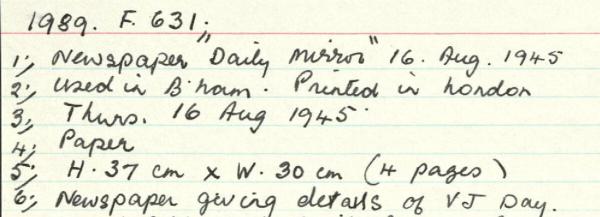 1989. F. 631.
1; Newspaper "Daily Mirror" 16. Aug. 1945
2; Used in B'ham. Printed in London
3; Thurs. 16 Aug 1945
4; Paper
5; H. 37 cm x W. 30 cm (4 pages)
6; Newspaper giving details of VJ Day.